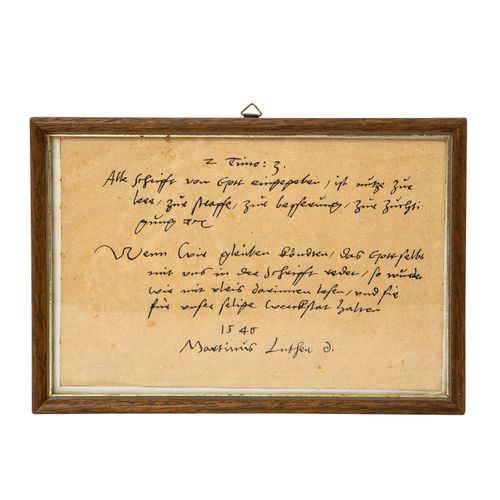 2 Timo: 3.
Alle schrifft von Gott eingegeben, ist nutze zur
lere, zur straffe, zur besserung, zur Zuchti-
gung etc
Wenn wir gleuben kondten, das Gott selbs
mit uns in der schrifft redet, so wurden
wir mit vleis darinnen lesen, und sie
fur unser selige werckstat halten
1546
Martinus Luther d.